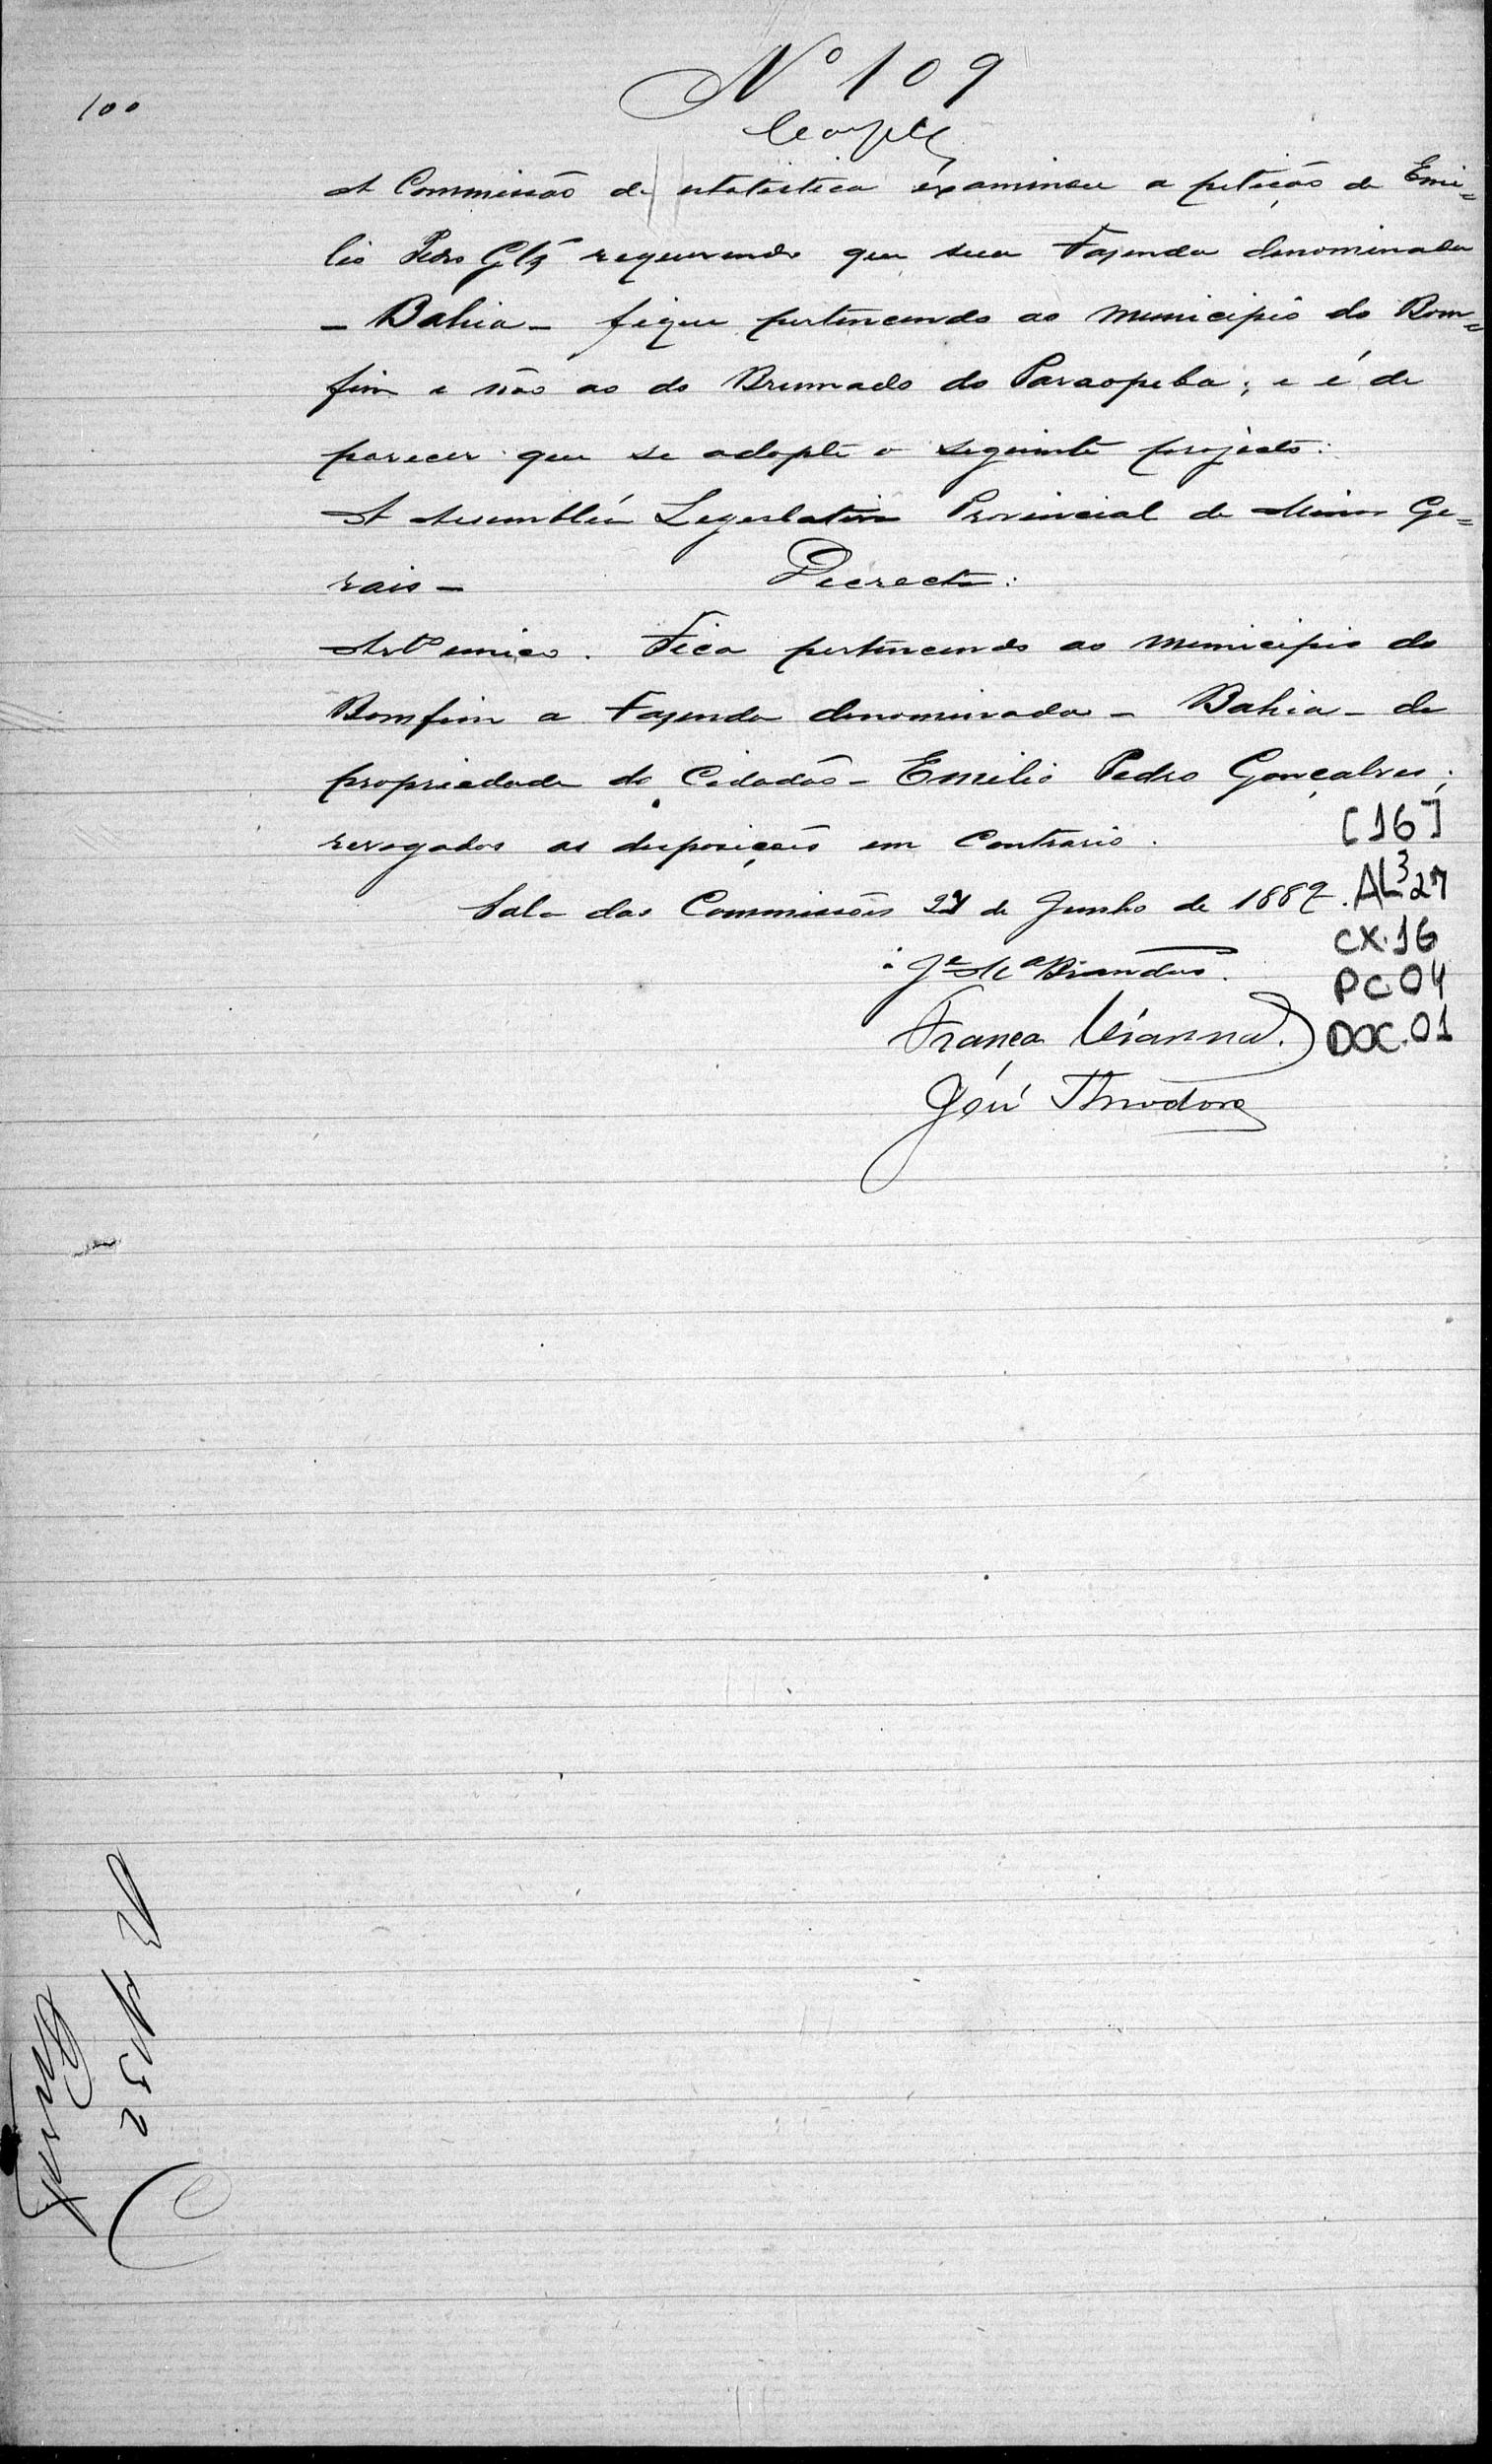 Nº 109
100
A Commissão de estatistica examinou a petição de Emi=
lio Pedro Glz requerendo que sua Fazenda denominada
- Bahia - fique pertencendo ao Municipio do Bom=
fim e não ao do Brumado do Paraopeba; e é de
parecer que se adopte o seguinte projecto:
A Assembléa Legeslativa Provincial de Minas Ge=
raes - Decreta:
Artº unico. Fica pertencendo ao Municipio do
Bomfim a Fazenda denominada - Bahia - de
propriedade do Cidadão - Emilio Pedro Gonçalves;
revogados as disposições em Contrario.
Sala das Commissões 27 de Junho de 1887.
Je Ma Brandão.
França Vianna.
José Theodoro
[16]
AL3 27
CX.16
PC.04
DOC.01